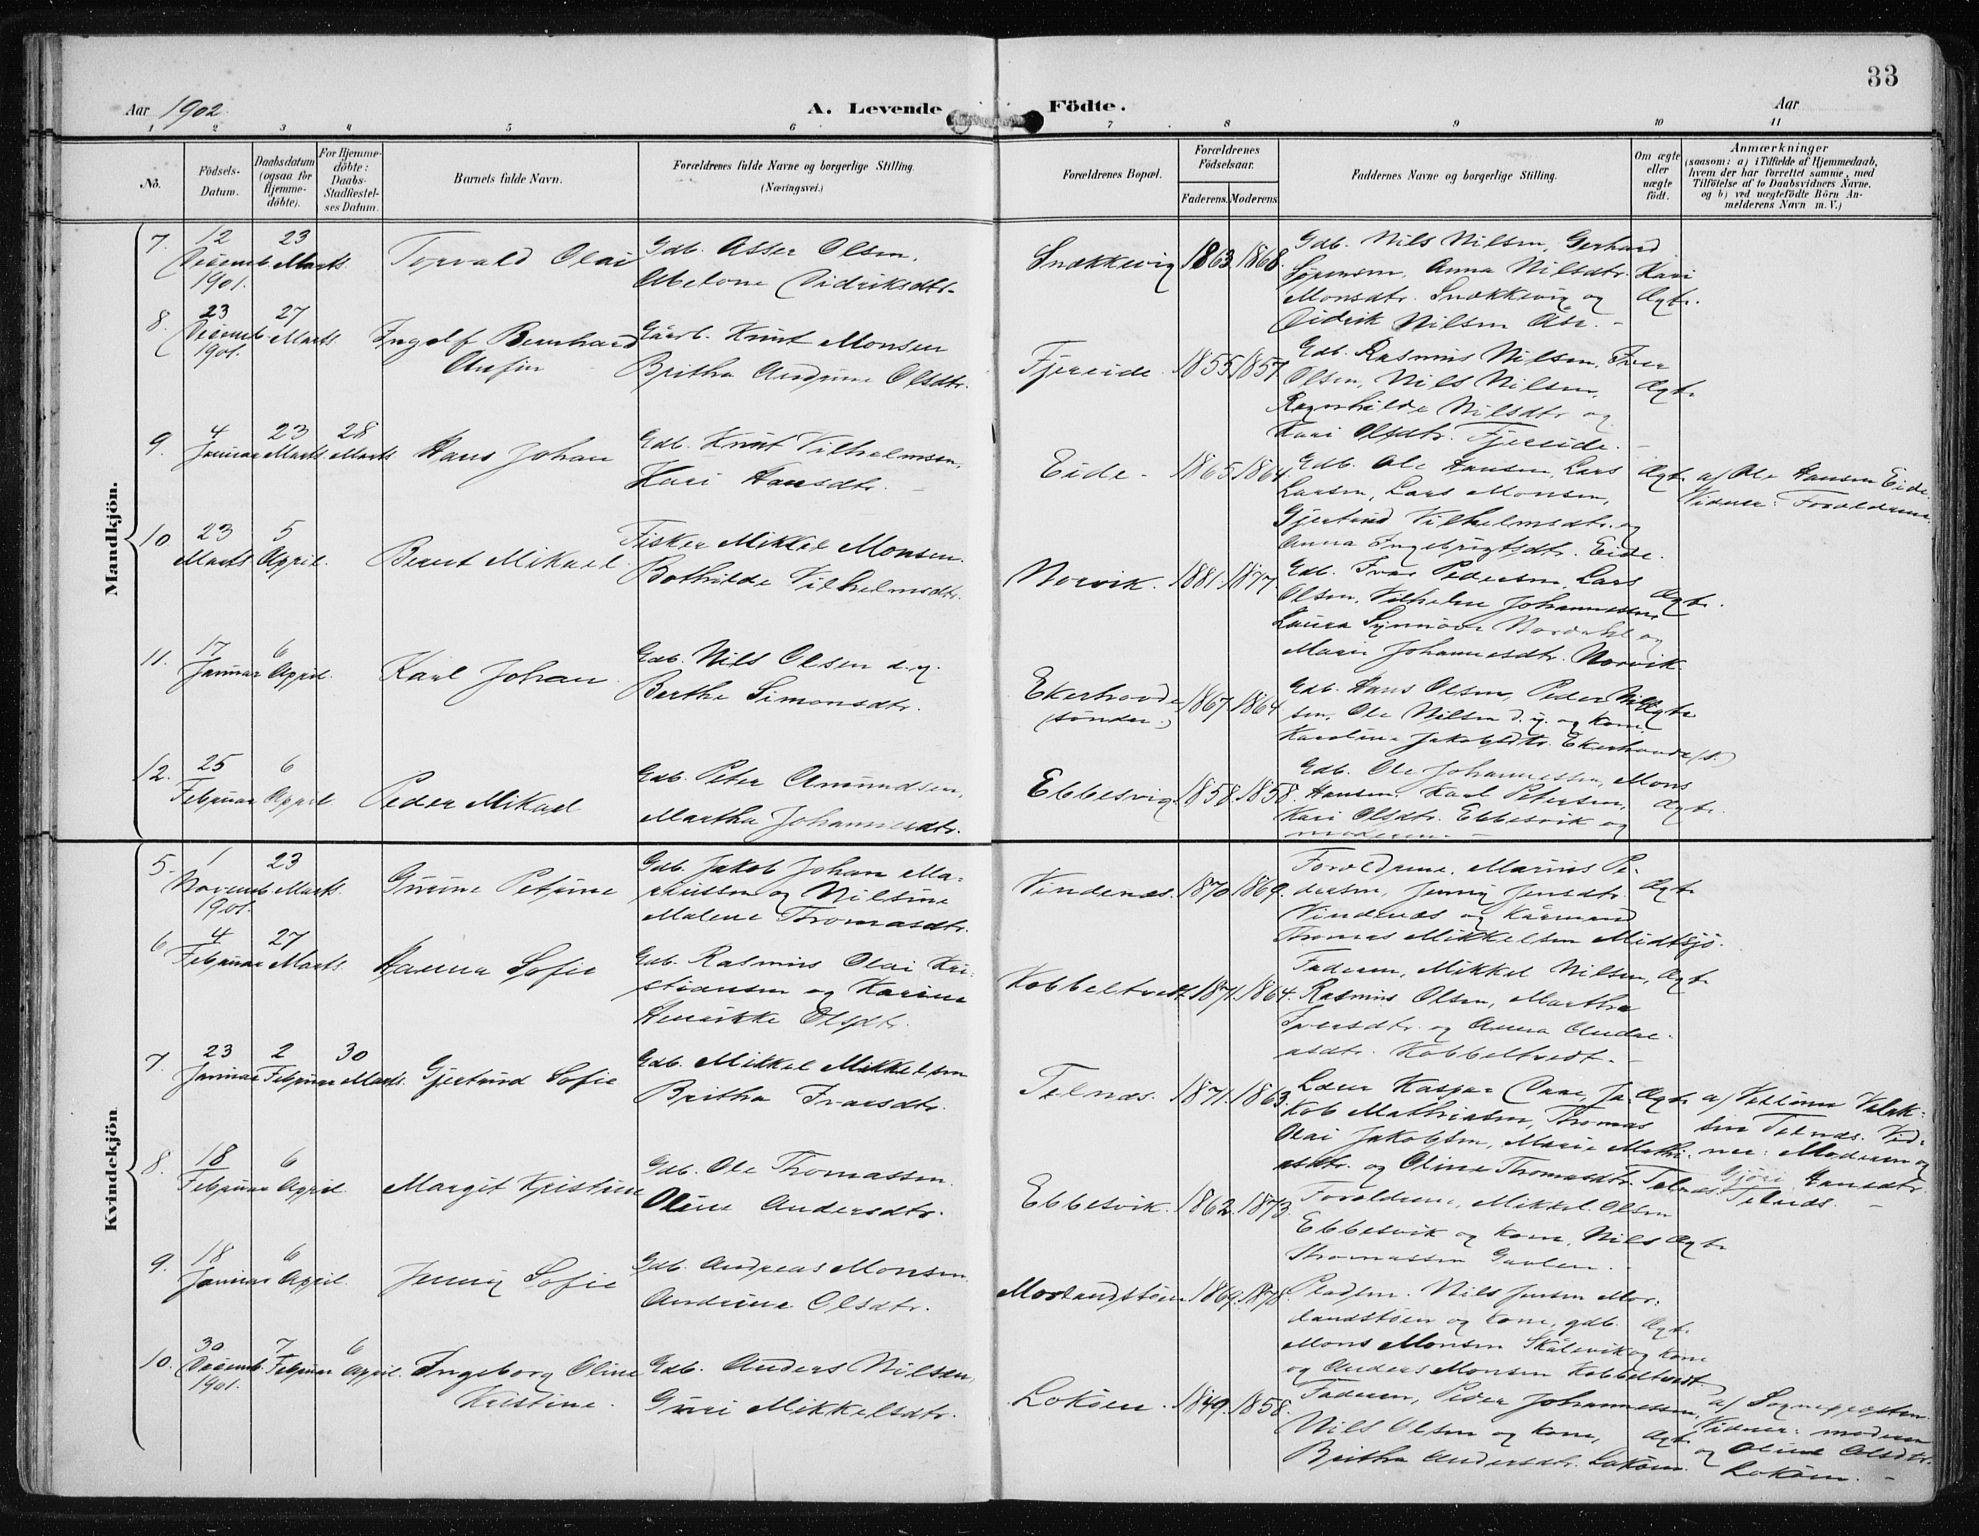 33
Aar 1902.
A. Levende Födte.
Aar
1 2 3 4 5 6 7 8 9 10 11
No.
Födsels-Datum.
Daabsdatum (ogsaa for Hjemme-döbte).
For Hjemme-döbte: Daabs-Stadfæstel-ses Datum.
Barnets fulde Navn.
Forældrenes fulde Navne og borgerlige Stilling. (Næringsvei.)
Forældrenes Bopæl.
Forældrenes Födselsaar.
Faderens. Moderens.
Faddernes Navne og borgerlige Stilling.
Om ægte eller uægte födt.
Anmærkninger
(saasom: a) i Tilfælde af Hjemmedaab, hvem der har forrettet samme, med Tilföielse af to Daabsvidners Navne, og b) ved uægtefödte Börn An-melderens Navn m. V.)
Mandkjön.
7. 12 Decemb. 1901. 23 Marts. Torvald Olai
Gdb. Asser Olsen,
Abelone Didriksdtr.
Snekkevig 1863. 1868.
Gdb. Nils Nilsen, Gerhard
Sørensen, Anna Nilsdtr. Kari
Monsdtr. Snekkevig og
Didrik Nilsen
Ægte.
8. 23 Decemb. 1901. 27 Marts. Ingolf Bernhard
Anfin
Gaarb. Knut Monsen
Britha Andrine Olsdtr.
Fjereide. 1855. 1857.
Gdb. Rasmus Nilsen, Iver
Olsen, Nils Nilsen,
Ragnhilde Nilsdtr og
Kari Olsdtr. Fjereide.
Ægte
9. 4 Januar 23 Marts. 28 Marts. Hans Johan
Gdb. Knut Vilhelmsen,
Kari Hansdtr.
Eide. 1865. 1864
Gdb. Ole Hansen, Lars
Larsen, Lars Monsen,
Gjertrud Vilhelmsdtr. og
Anna Ingebrigtsdtr. Eide.
Ægte.
af Ole Hansen Eide.
Vidner: Forældrene.
10 23 Marts 5 April. Bernt Mikael.
Fisker Mikkel Monsen.
Bothilde Vilhelmsdtr.
Norvik. 1881. 1877.
Gdb. Ivar Pedersen, Lars
Olsen, Vilhelm Johannessen,
Laura Synnøve og
Marie Johannesdtr. Norvik
Ægte.
11. 17 Januar 6 April. Karl Johan
Gdb. Nils Olsen d. y.
Berthe Simonsdtr.
Ekerhovde (söndre) 1867. 1864
Gdb. Hans Olsen, Peder Nil-
sen, Ole Nilsen d. y. og kone
Karoline Jakobsdtr. Ekerhovde (s.)
Ægte
12. 25 Februar 6 April Peder Mikael
Gdb. Peter Amundsen,
Martha Johannesdtr.
Ebbesvig. 1858. 1858.
Gdb. Ole Johannessen, Mons
Hansen, Karl Petersen,
Kari Olsdtr. Ebbesvik og
moderen.
Ægte.
Kvindekjön.
5. 1 Novemb. 1901. 23 Marts. Gurine Petrine
Gdb. Jakob Johan Ma-
thissen og Nilsine
Malene Thomasdtr.
Vindenæs. 1870. 1869.
Forældrene, Marius Pe-
dersen, Jenny Jensdtr.
Vindenæs og
Thomas Mikkelsen Midtsjö.
Ægte
6. 4 Februar 27 Marts. Hanna Sofie
Gdb. Rasmus Olai Kri-
stiansen og Karine
Henrikke Olsdtr.
Kobbeltvedt. 1871. 1864.
Faderen, Mikkel Nilsen,
Rasmus Olsen, Martha
Iversdtr. og Anna Andre-
asdtr. Kobbeltvedt.
Ægte
7. 23 Januar 2 Februar 30 Marts. Gjertrud Sofie
Gdb. Mikkel Mikkelsen
Britha Ivarsdtr.
Telnæs. 1871. 1863.
Lærer Kaspar, Ja-
kob Mathiasen, Thomas
Olai Jakobsen, Marie Mathi-
asdtr. og Oline Thomasdtr. Telnæs.
Ægte
Telnæs. Vid-
ner: Moderen og
Hansdtr.
Telnæs.
8. 18 Februar 6 April. Margit Kristine
Gdb. Ole Thomassen.
Oline Andersdtr.
Ebbesvik. 1862. 1873.
Forældrene, Mikkel Olsen
Ebbesvik og kone, Nils
Thomassen
Ægte
9. 18 Januar 6 April. Jenny Sofie
Gdb. Andreas Monsen
Andrine Olsdtr.
Morlandstöen 1869. 1878.
Pladsm. Nils Jensen Mor-
landstöen og kone, gdb.
Mons Monsen Skålevik og kone
og Anders Monsen Kobbeltvedt.
Ægte.
10. 30 Decemb. 1901. 7 Februar 6 April. Ingeborg Oline
Kristine.
Gdb. Anders Nilsen,
Guri Mikkelsdtr.
Loköen. 1849. 1858.
Faderen, Peder Johannessen,
Nils Olsen og kone,
Britha Andersdtr. Loköen.
Ægte
af Sognepresten.
Vidner: moderen
og Oline Olsdtr.
Loköen.